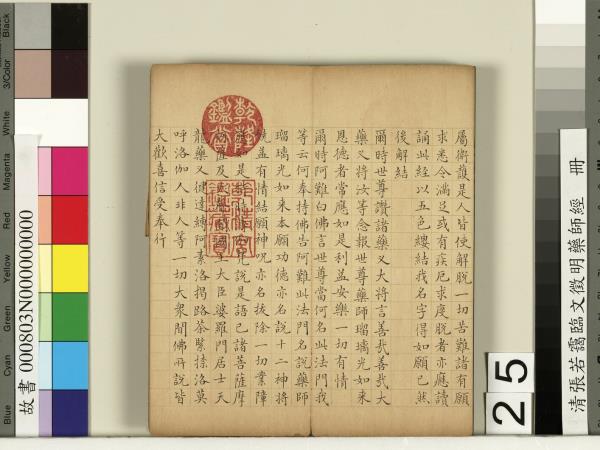 清張若靄臨文徵明藥師經 冊
屬衛護是人皆使解脫一切苦難諸有願
求悉令滿足或有疾厄求度脫者亦應讀
誦此經以五色縷結我名字得如願已然
後解結
爾時世尊讚諸藥叉大將言善哉善哉大
藥叉將汝等念報世尊藥師瑠璃光如來
恩德者常應如是利益安樂一切有情
爾時阿難白佛言世尊當何名此法門我
等云何奉持佛告阿難此法門名說藥師
瑠璃光如來本願功德亦名說十二神將
饒益有情結願神呪亦名拔除一切業障
是持說是語已諸菩薩摩
薩及王大臣婆羅門居士天
龍藥叉健達縛阿素洛揭路荼緊捺洛莫
呼洛伽人非人等一切大眾聞佛所說皆
大歡喜信受奉行
乾隆鑑賞
25
故書 000803N000000000
Black
3/Color
White
Magenta
Red
Yellow
Green
Cyan
Blue